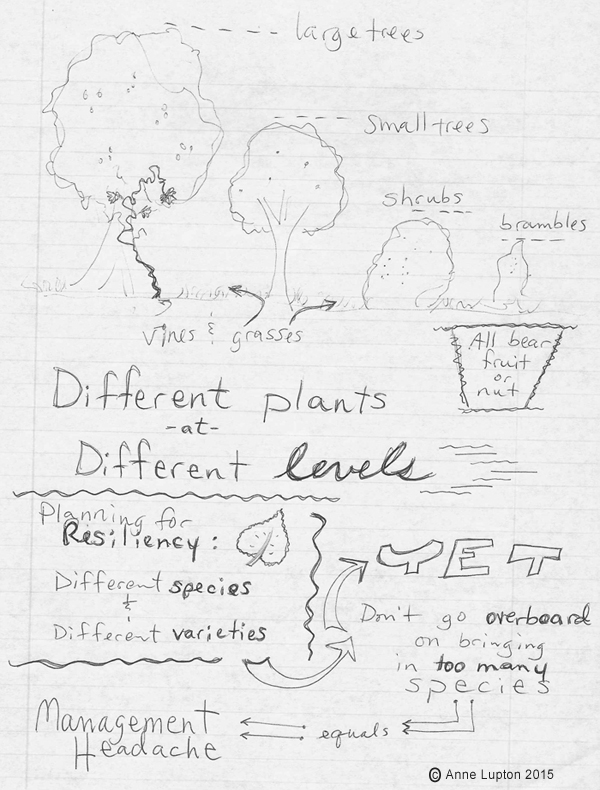 large trees
small trees
shrubs
brambles
vines & grasses
All bear
fruit
or
nut
Different plants
-at-
Different levels
Planning for
Resiliency:
Different species
&
Different varieties
YET
Don't go overboard
on bringing
in too many
species
equals
Management
Headache
© Anne Lupton 2015